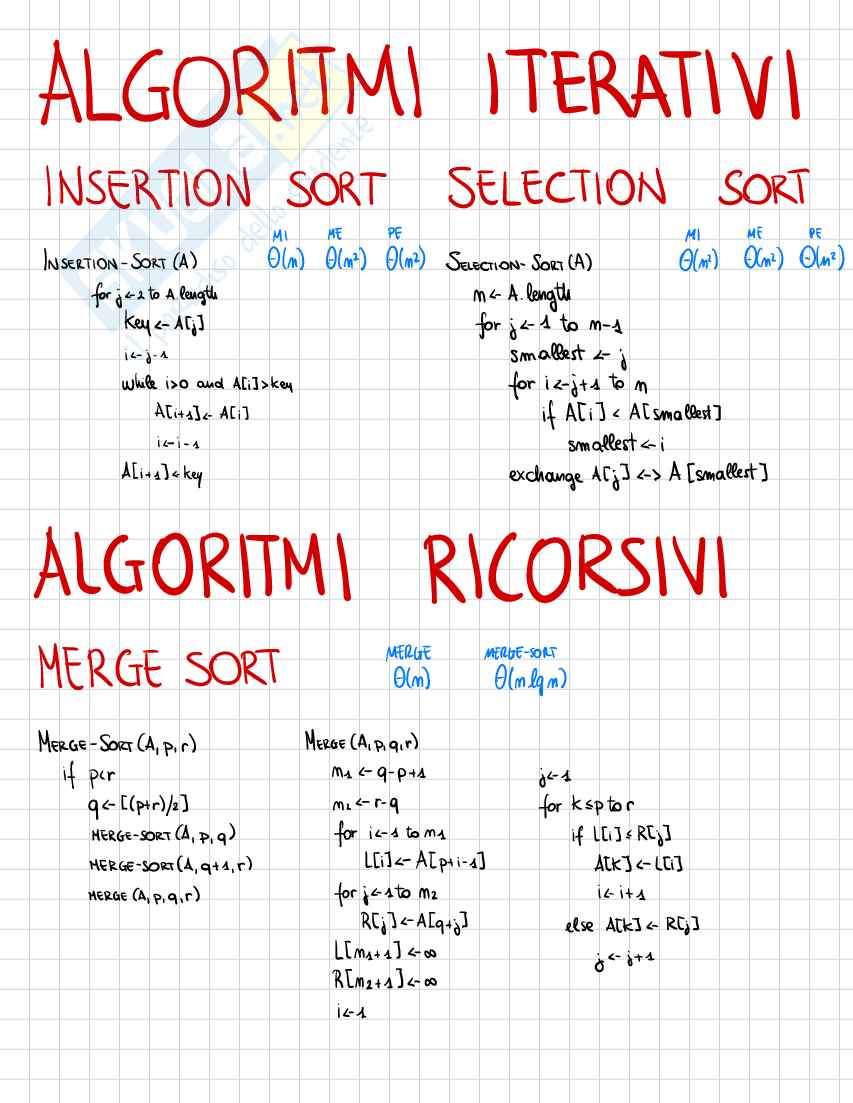 ALGORITMI ITERATIVI
INSERTION SORT
MI ME PE
INSERTION-SORT(A) Θ(n) Θ(n²) Θ(n²)
for j<-2 to A.length
key<-A[j]
i<-j-1
while i>0 and A[i]>key
A[i+1]<-A[i]
i<-i-1
A[i+1]<-key
SELECTION SORT
MI ME PE
SELECTION-SORT(A) Θ(n²) Θ(n²) Θ(n²)
n<-A.length
for j<-1 to n-1
smallest <-j
for i<-j+1 to n
if A[i] < A[smallest]
smallest<-i
exchange A[j] <-> A[smallest]
ALGORITMI RICORSIVI
MERGE SORT
MERGE MERGE-SORT
Θ(n) Θ(n lg n)
MERGE-SORT(A,p,r)
if p<r
q<-[(p+r)/2]
MERGE-SORT(A,p,q)
MERGE-SORT(A,q+1,r)
MERGE(A,p,q,r)
MERGE(A,p,q,r)
n1<-q-p+1
n2<-r-q
for i<-1 to n1
L[i]<-A[p+i-1]
for j<-1 to n2
R[j]<-A[q+j]
L[n1+1]<-∞
R[n2+1]<-∞
i<-1
j<-1
for k≤p to r
if L[i]≤R[j]
A[k]<-L[i]
i<-i+1
else A[k]<-R[j]
j<-j+1